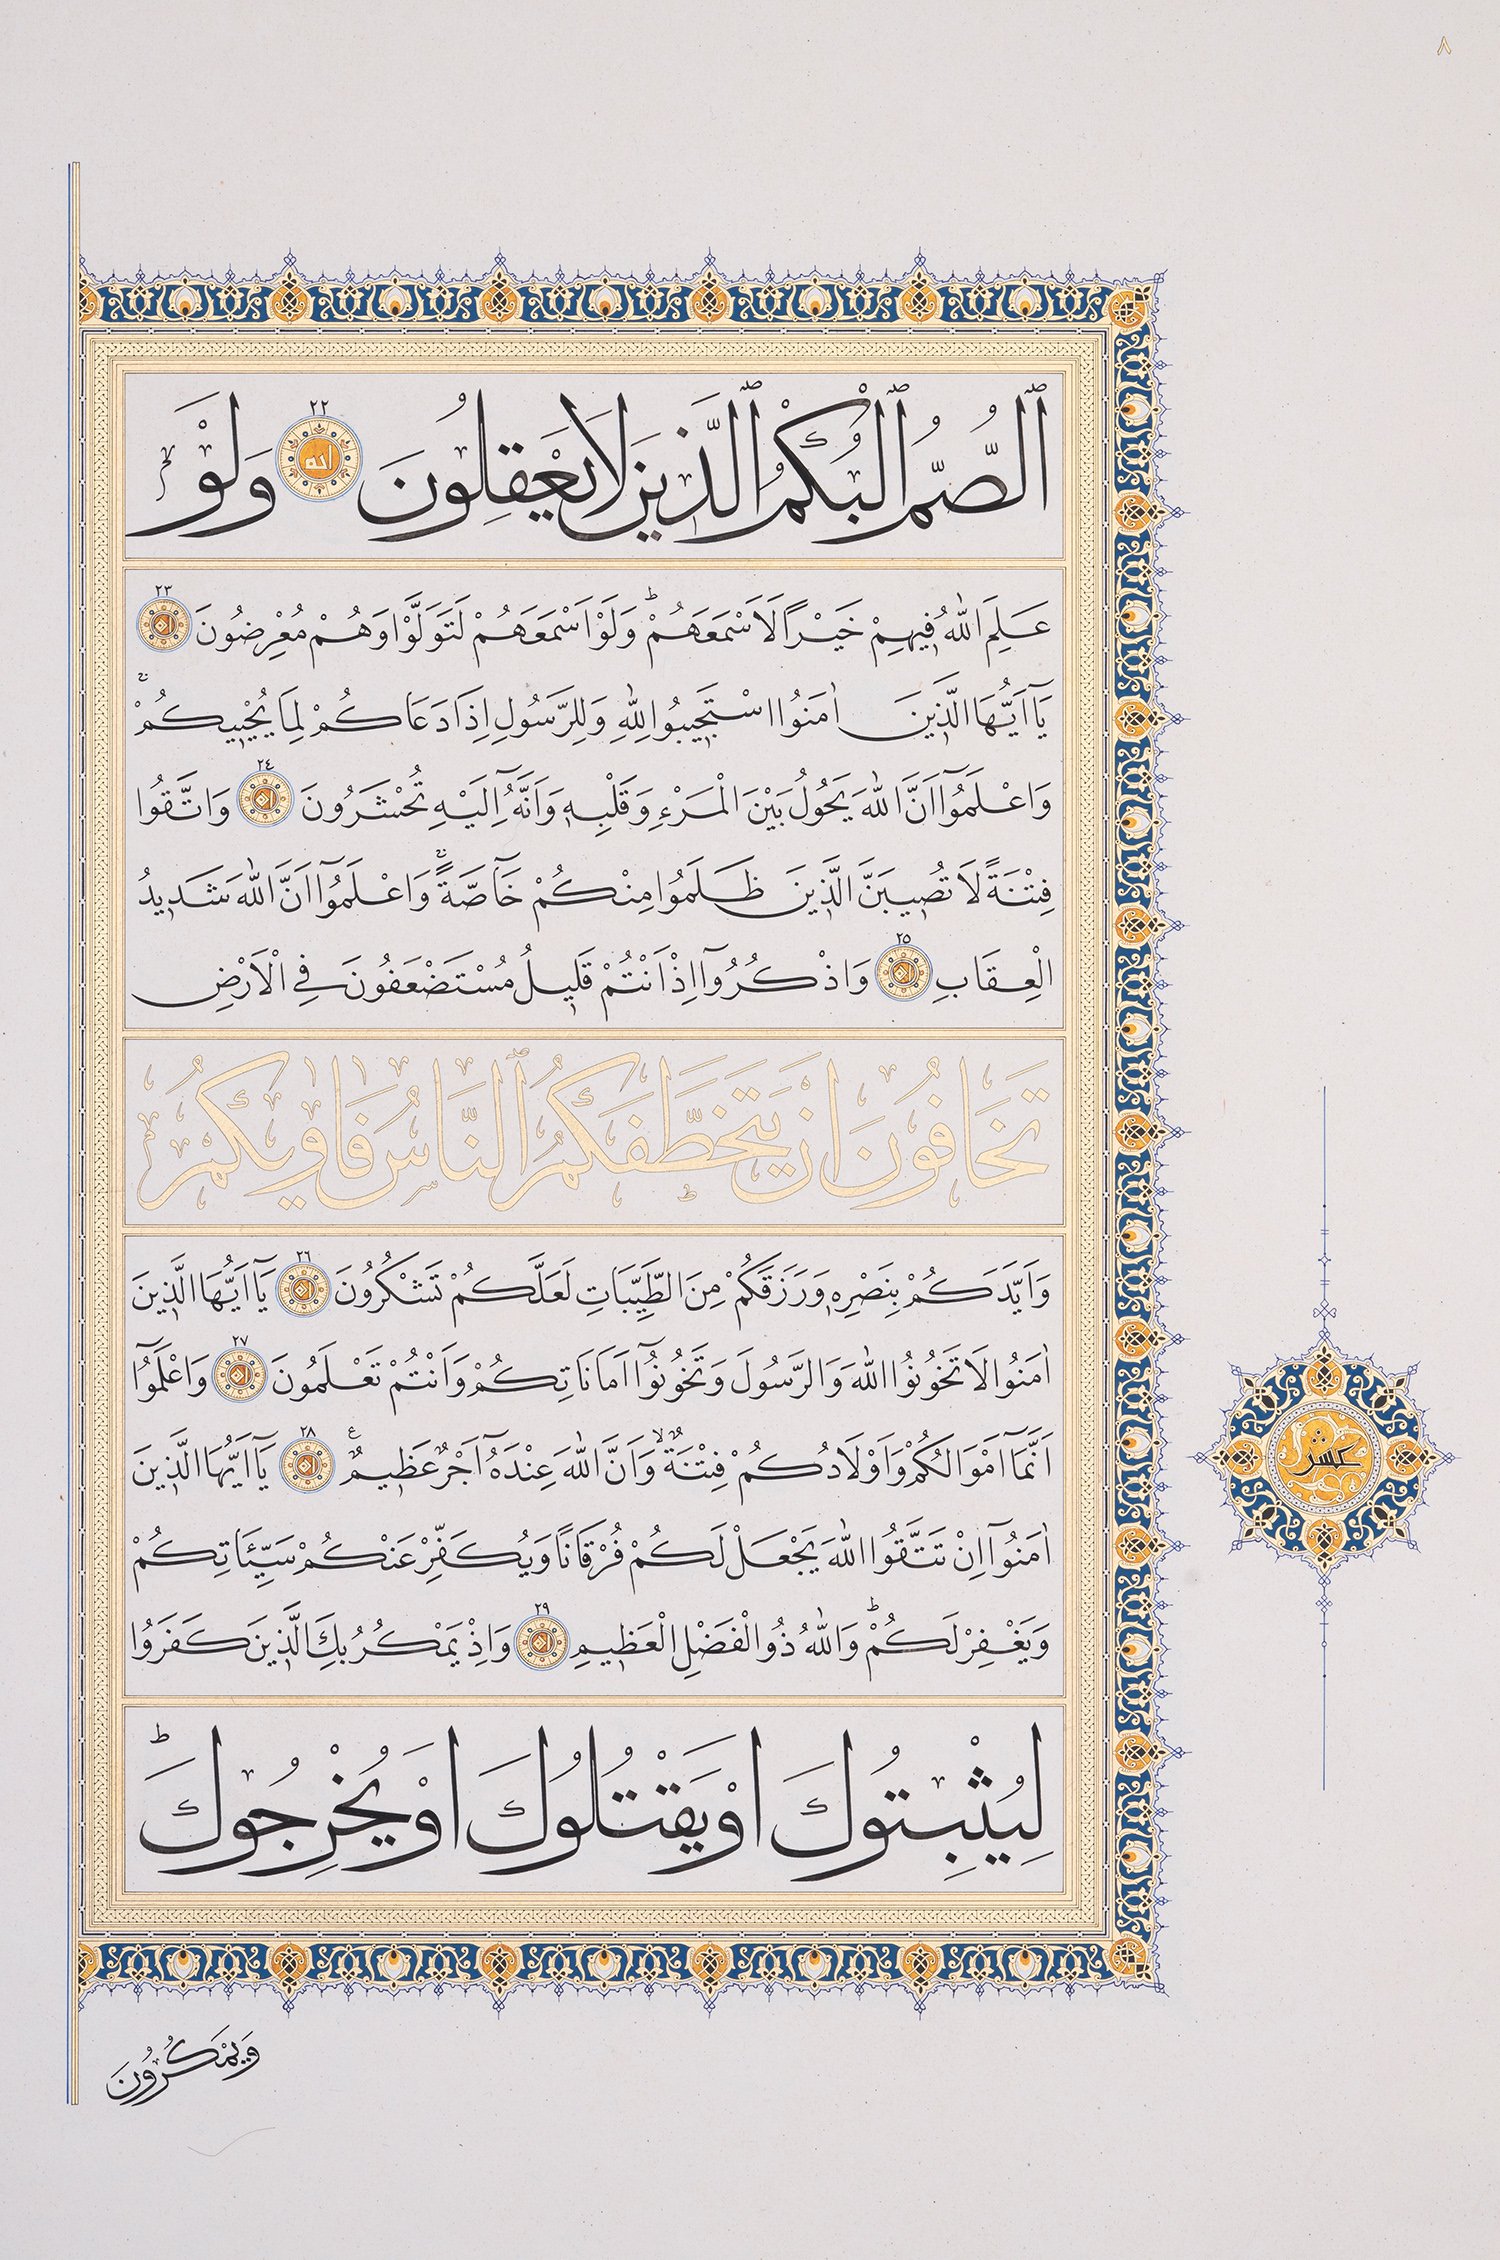 ٨
اَلصُّمُّ الْبُكْمُ الَّذِينَ لَا يَعْقِلُونَ ٢٢ وَلَوْ
عَلِمَ اللّٰهُ فِيهِمْ خَيْرًا لَاَسْمَعَهُمْ ۜ وَلَوْ اَسْمَعَهُمْ لَتَوَلَّوْا وَهُمْ مُعْرِضُونَ ٢٣
يَٓا اَيُّهَا الَّذِينَ اٰمَنُوا اسْتَجِيبُوا لِلّٰهِ وَلِلرَّسُولِ اِذَا دَعَاكُمْ لِمَا يُحْيِيكُمْ ۚ
وَاعْلَمُٓوا اَنَّ اللّٰهَ يَحُولُ بَيْنَ الْمَرْءِ وَقَلْبِهِ وَاَنَّهُٓ اِلَيْهِ تُحْشَرُونَ ٢٤ وَاتَّقُوا
فِتْنَةً لَا تُصِيبَنَّ الَّذِينَ ظَلَمُوا مِنْكُمْ خَٓاصَّةً ۚ وَاعْلَمُٓوا اَنَّ اللّٰهَ شَدِيدُ
الْعِقَابِ ٢٥ وَاذْكُرُٓوا اِذْ اَنْتُمْ قَلِيلٌ مُسْتَضْعَفُونَ فِي الْاَرْضِ
تَخَافُونَ اَنْ يَتَخَطَّفَكُمُ النَّاسُ فَاٰوٰيكُمْ
وَاَيَّدَكُمْ بِنَصْرِهِ وَرَزَقَكُمْ مِنَ الطَّيِّبَاتِ لَعَلَّكُمْ تَشْكُرُونَ ٢٦ يَٓا اَيُّهَا الَّذِينَ
اٰمَنُوا لَا تَخُونُوا اللّٰهَ وَالرَّسُولَ وَتَخُونُٓوا اَمَانَاتِكُمْ وَاَنْتُمْ تَعْلَمُونَ ٢٧ وَاعْلَمُٓوا
اَنَّمَٓا اَمْوَالُكُمْ وَاَوْلَادُكُمْ فِتْنَةٌ ۙ وَاَنَّ اللّٰهَ عِنْدَهُٓ اَجْرٌ عَظِيمٌ ع ٢٨ يَٓا اَيُّهَا الَّذِينَ
اٰمَنُٓوا اِنْ تَتَّقُوا اللّٰهَ يَجْعَلْ لَكُمْ فُرْقَانًا وَيُكَفِّرْ عَنْكُمْ سَيِّـَٔاتِكُمْ
عشر
وَيَغْفِرْ لَكُمْ ۜ وَاللّٰهُ ذُو الْفَضْلِ الْعَظِيمِ ٢٩ وَاِذْ يَمْكُرُ بِكَ الَّذِينَ كَفَرُوا
لِيُثْبِتُوكَ اَوْ يَقْتُلُوكَ اَوْ يُخْرِجُوكَ ۜ
وَيَمْكُرُونَ